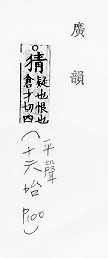 廣韻
○猜疑也恨也
倉才切四
平聲
(十六咍 P100)